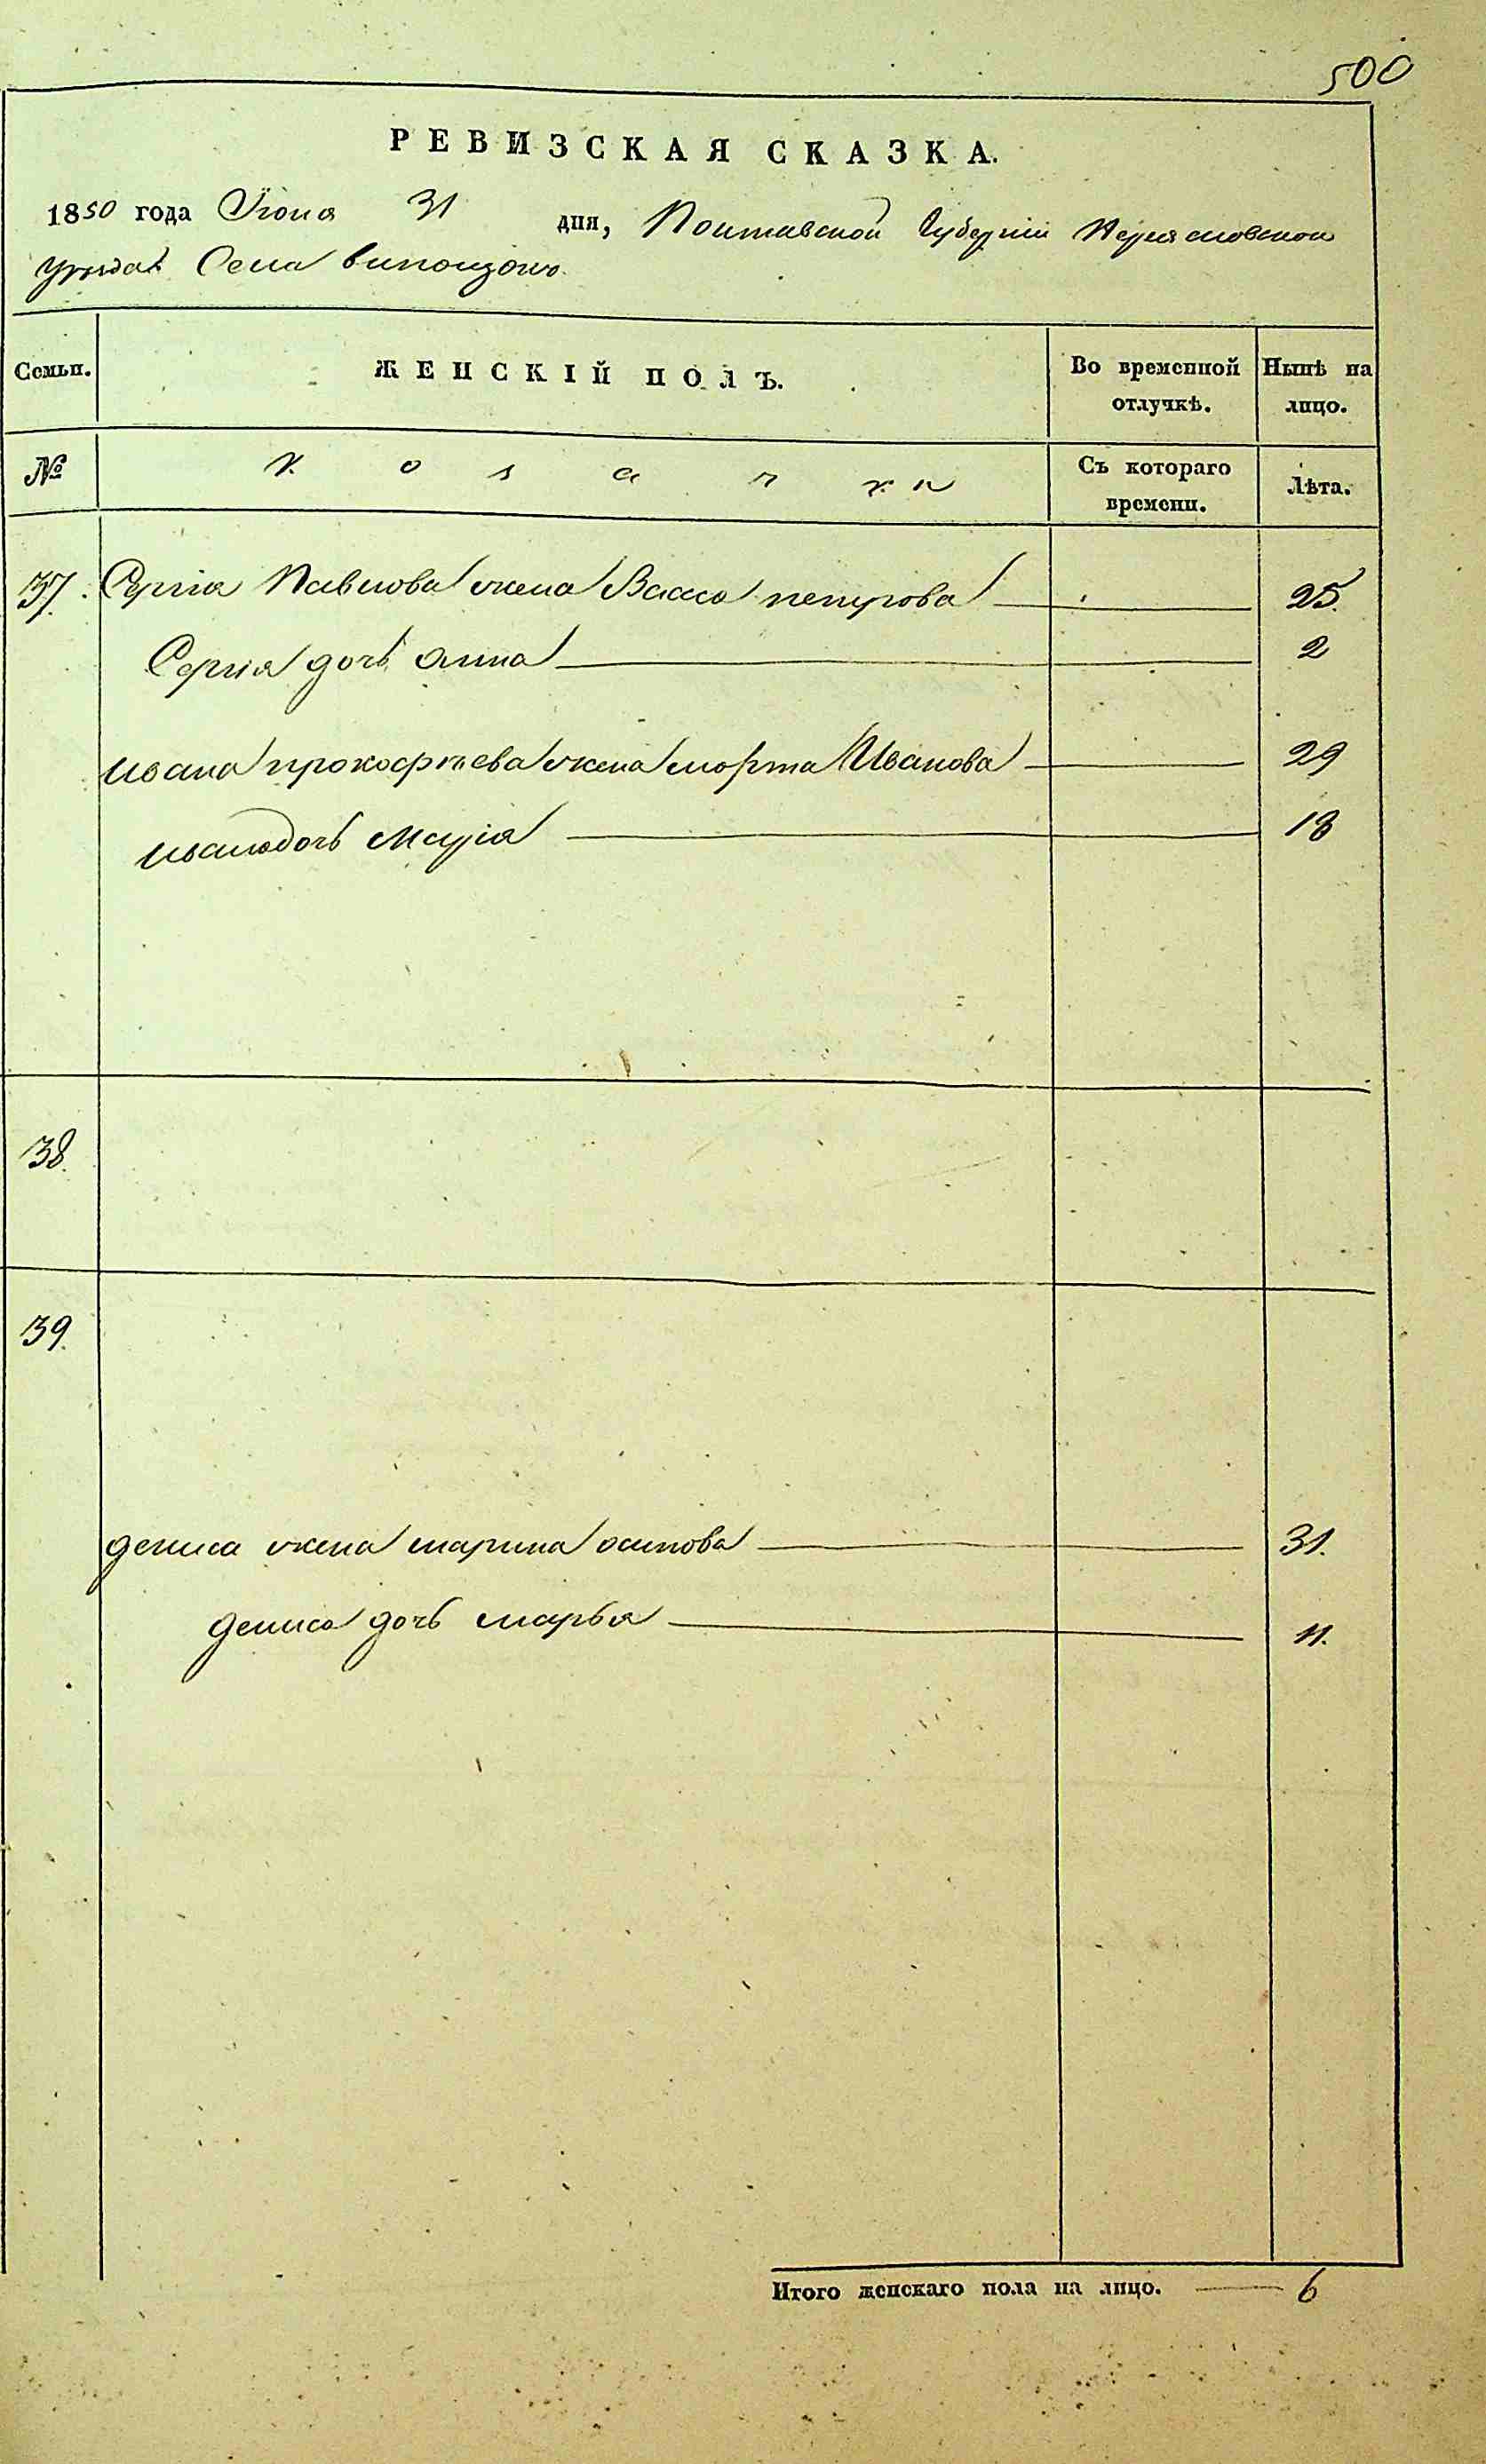 500
РЕВИЗСКАЯ СКАЗКА.
1850 года Іюня 31 дня, Полтавской Губерніи Переясловского
уезда Села Виползокъ
Семьи. ЖЕНСКІЙ ПОЛЪ. Во временной отлучкѣ. Нынѣ на лицо.
№ Козачки Съ котораго времени. Лѣта.
37. Сергія Павлова жена Васса петрова 25.
Сергія дочь Анна 2
Ивана прокофьева жена марта Иванова 29
Ивана дочь Марія 13
38.
39.
дениса жена марина осипова 31.
дениса дочь марья 11.
Итого женскаго пола на лицо. 6